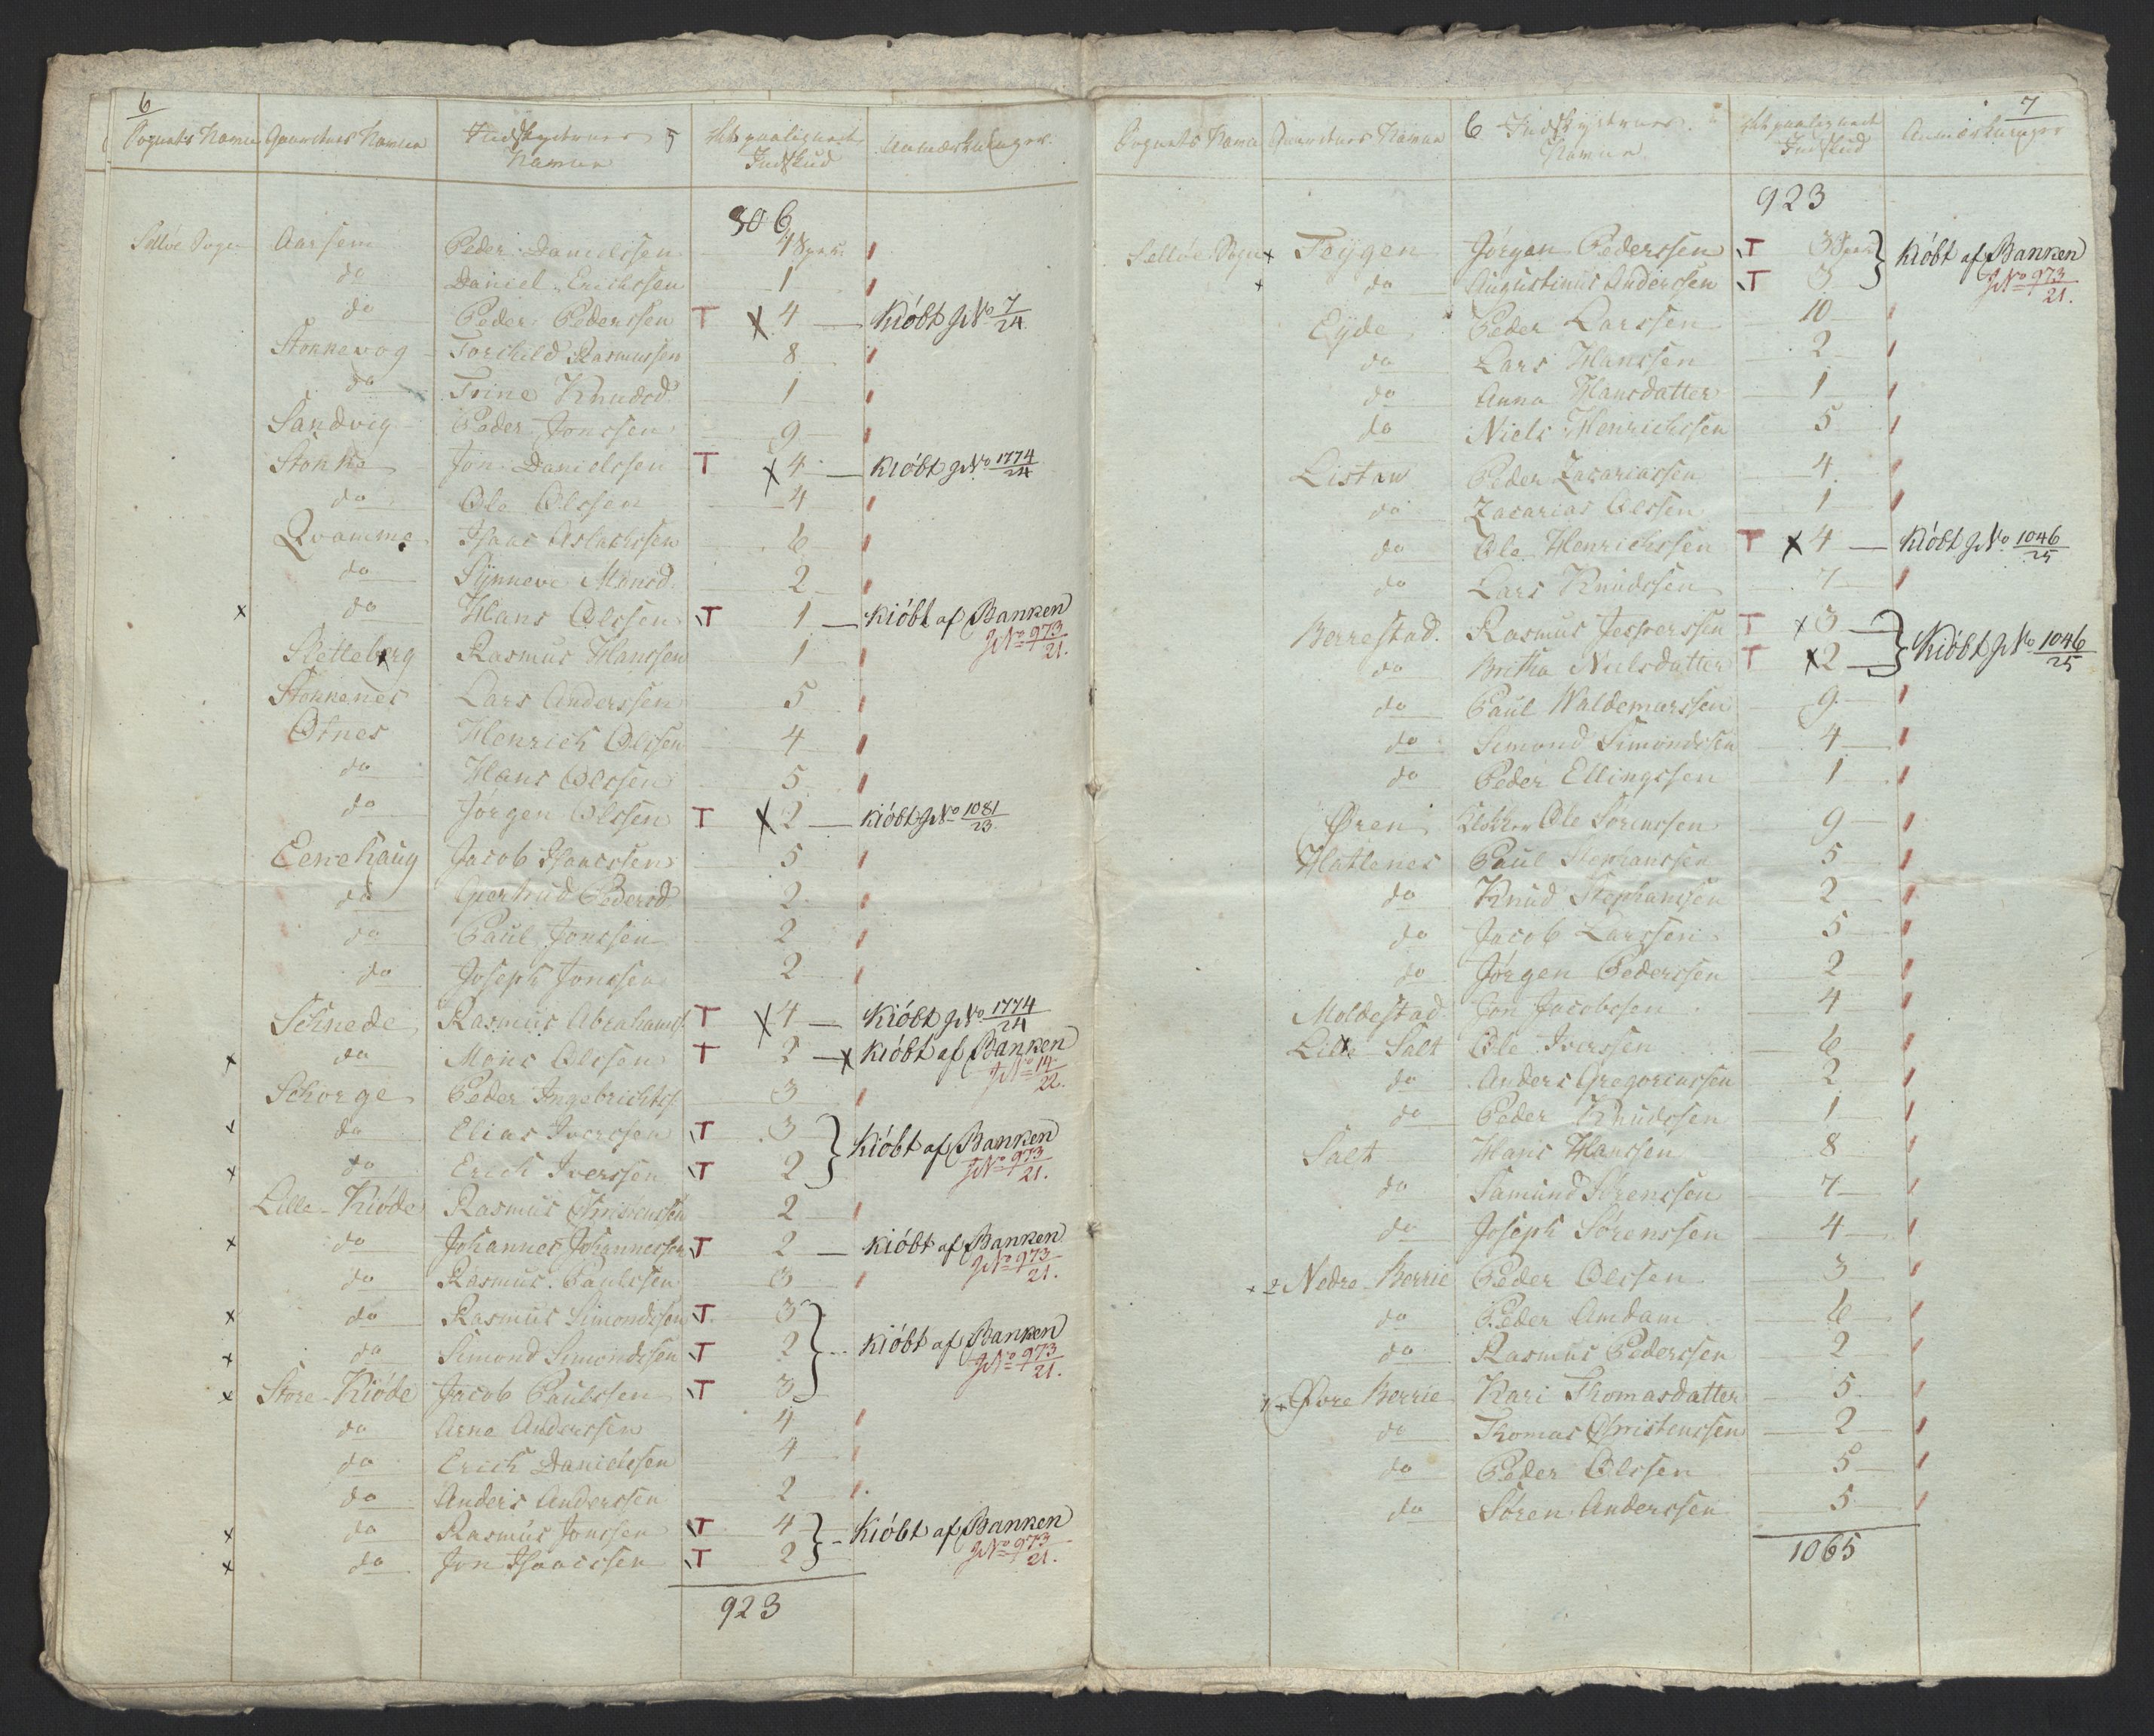 6
Sognets Navn Gaardens Navn Indskydernes Navne 5 Det paalignede Indskud Anmærkninger.
806
Selløe Sogn Aarsem Peder Danielssen 4 Spec.
do Daniel Erichssen 1
do Peder Pederssen T x 4 — Kiöbt J No 7/24
Stokkevog Torchild Rasmussen 8
do Trine Knudsd. 1
Sandvig Peder Jonssen 9
Stokke Jon Danielssen T x 4 — Kiöbt J No 1774/24
do Ole Olssen 4
Qvamme Isaac Aslachssen 6
do Synneve Monsd. 2
x do Hans Olssen T 1 — Kiöbt af Banken J No 973/21.
Sletteberg Rasmus Hanssen 1
Stokkenes Lars Anderssen 5
Otnes Henrich Olssen 4
do Hans Olssen 5
do Jörgen Olssen T x 2 — Kiöbt J No 1081/23.
Eenehaug Jacob Isaacssen 5
do Giertrud Pedersd. 2
do Paul Jonssen 2
do Joseph Jonssen 2
Schnede Rasmus Abrahams. T x 4 — Kiöbt J No 1774/24
x do Mons Olssen T 2 — x Kiöbt af Banken J No 14/22.
Schorge Peder Ingebrichts. 3
x do Elias Iverssen T 3 } Kiöbt af Banken J No 973/21.
x do Erich Iverssen T 2
Lille Kiöde Rasmus Christenssen 2
x do Johannes Johannessen T 2 — Kiöbt af Banken J No 973/21.
do Rasmus Paulssen 3
x do Rasmus Simondssen T 3 } Kiöbt af Banken J No 973/21.
x do Simond Simondssen T 2
x Store Kiöde Jacob Paulssen T 3
do Arne Anderssen 4
do Erich Danielssen 4
do Anders Anderssen 2
x do Rasmus Jonssen T 4 } Kiöbt af Banken J No 973/21.
x do Jon Isaacssen T 2
923
7
Sognets Navn Gaardens Navn 6 Indskydernes Navne Det paalignede Indskud Anmærkninger
923
Selløe Sogn x Töygen Jörgen Pederssen T 3 Spec. } Kiöbt af Banken J No 973/21.
x do Augustinus Anderssen T 3
Eyde Peder Larssen 10
do Lars Hanssen 2
do Anna Hansdatter 1
do Niels Henrichssen 5
Listau Peder Zacariassen 4
do Zacarias Olssen 1
do Ole Henrichssen T x 4 — Kiöbt J No 1046/25
do Lars Knudssen 7
Berrestad. Rasmus Jesperssen T x 3 } Kiöbt J No 1046/25
do Britha Nielsdatter T x 2
do Paul Waldemarssen 9
do Simond Simondssen 4
do Peder Ellingssen 1
Øren Klokker Ole Sörenssen 9
Hatlenes Paul Stephanssen 5
do Knud Stephanssen 2
do Jacob Larssen 5
do Jörgen Pederssen 2
Moldestad Jon Jacobssen 4
Lille Salt Ole Iverssen 6
do Anders Gregoriussen 2
do Peder Knudssen 1
Salt Hans Hanssen 8
do Samund Sörenssen 7
do Joseph Sörenssen 4
x 2 Nedre Berrie Peder Olssen 3
do Peder Amdam 6
do Rasmus Pederssen 2
x Øvre Berrie Kari Thomasdatter 5
do Thomas Christenssen 2
do Peder Olssen 5
do Sören Anderssen 5
1065